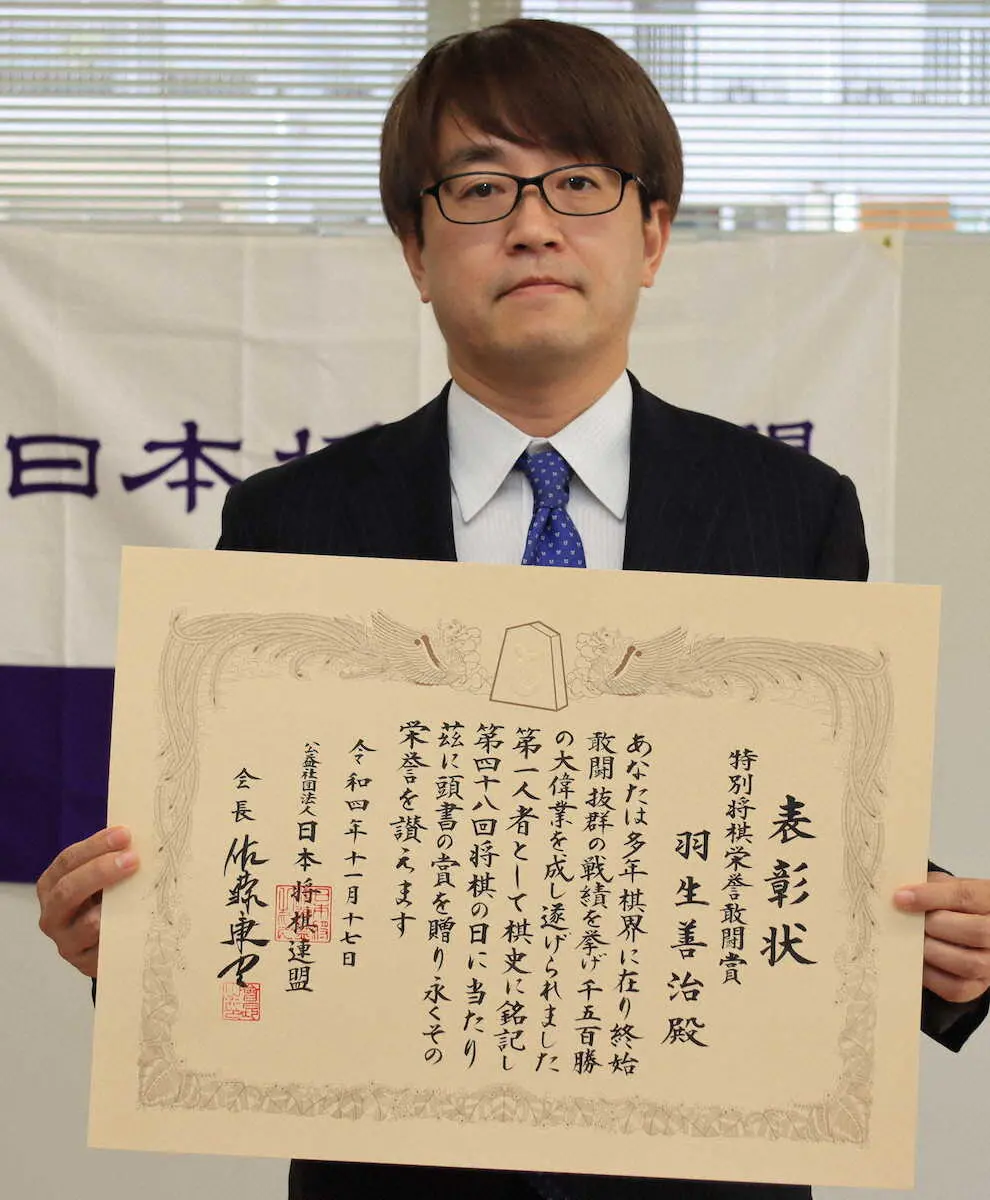 日本
表彰状
特別将棋栄誉敢闘賞
羽生善治殿
あなたは多年棋界に在り終始
敢闘抜群の戦績を挙げ千五百勝
の大偉業を成し遂げられました
第一人者として棋史に銘記し
第四十八回将棋の日に当たり
茲に頭書の賞を贈り永くその
栄誉を讃えます
令和四年十一月十七日
公益社団法人 日本将棋連盟
会長 佐藤康光